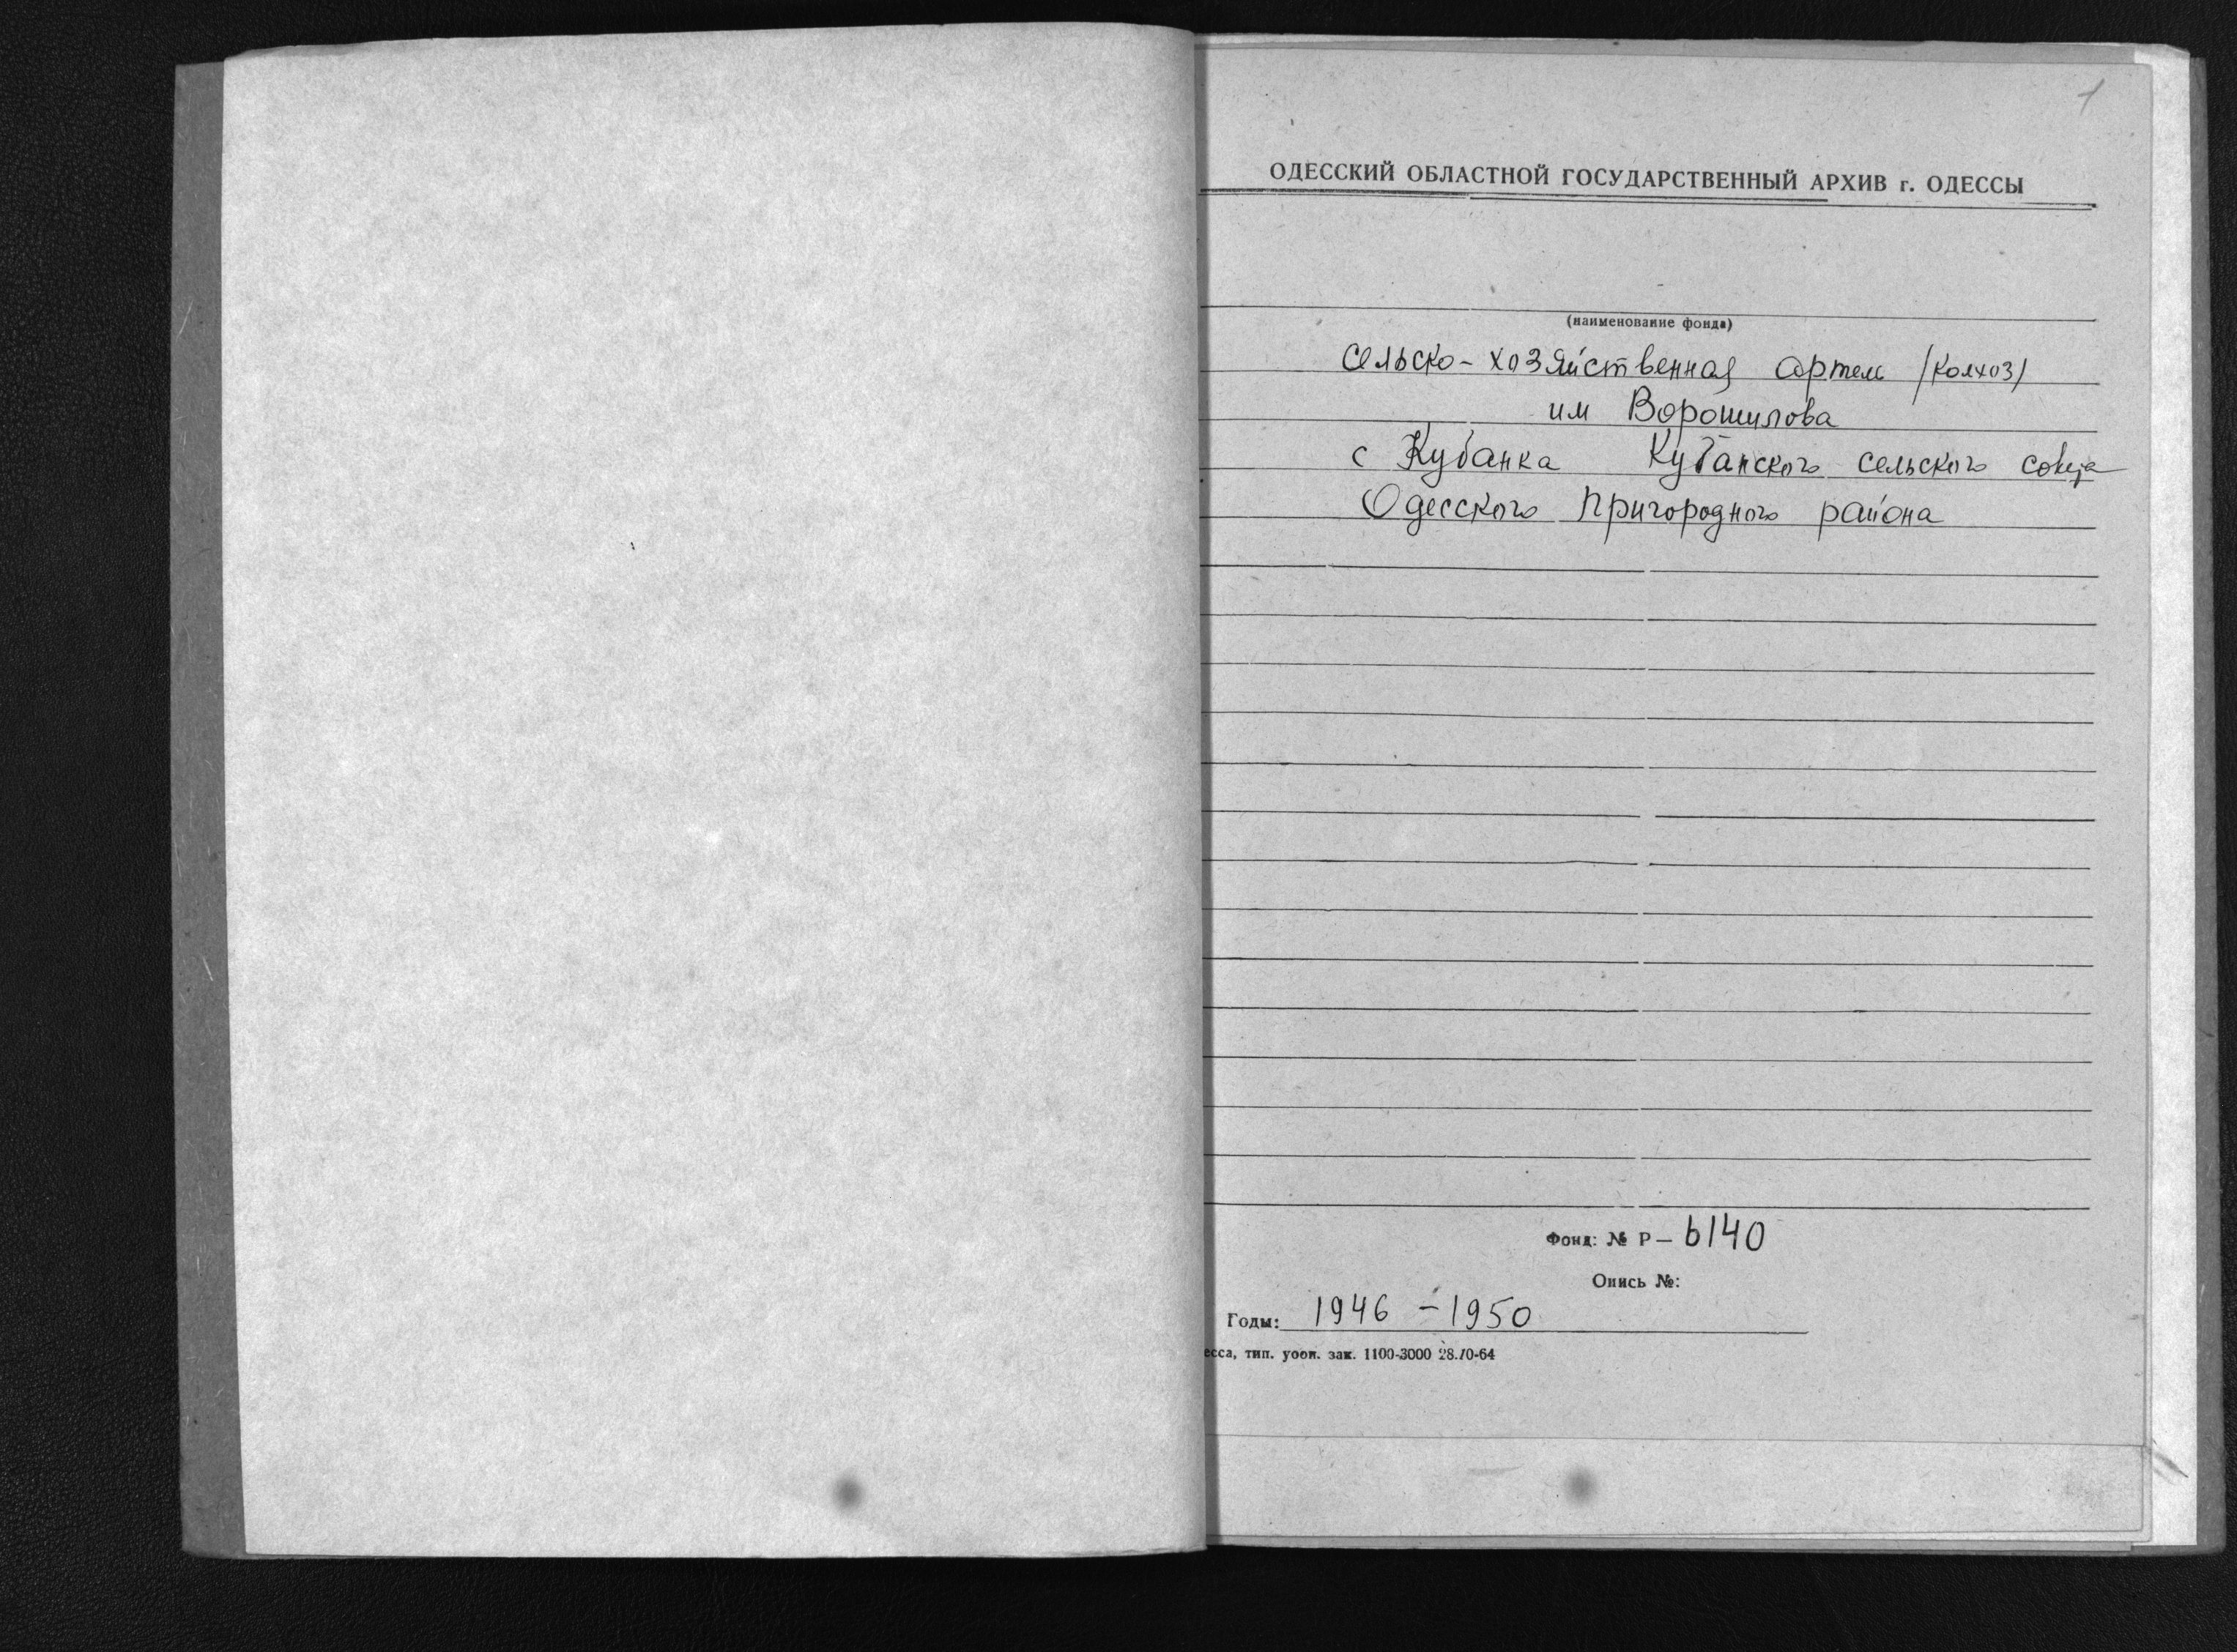 1
ОДЕССКИЙ ОБЛАСТНОЙ ГОСУДАРСТВЕННЫЙ АРХИВ г. ОДЕССЫ
(наименование фонда)
Сельско-хозяйственная артель /колхоз/
им Ворошилова
с Кубанка Кубанского сельского совета
Одесского Пригородного района
Фонд: № Р— 6140
Опись №:
Годы: 1946 – 1950
есса, тип. уооп. зак. 1100-3000 28.10-64